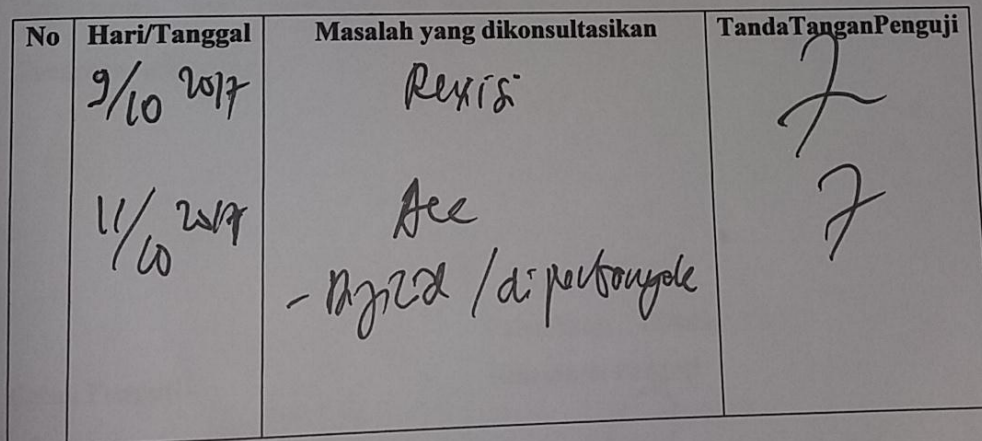 No Hari/Tanggal Masalah yang dikonsultasikan TandaTanganPenguji
9/10 2017 Revisi
11/10 2017 Acc
- Dijilid / diperbanyak